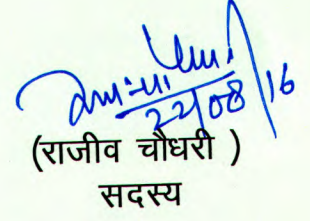 22/08/16
(राजीव चौधरी )
सदस्य